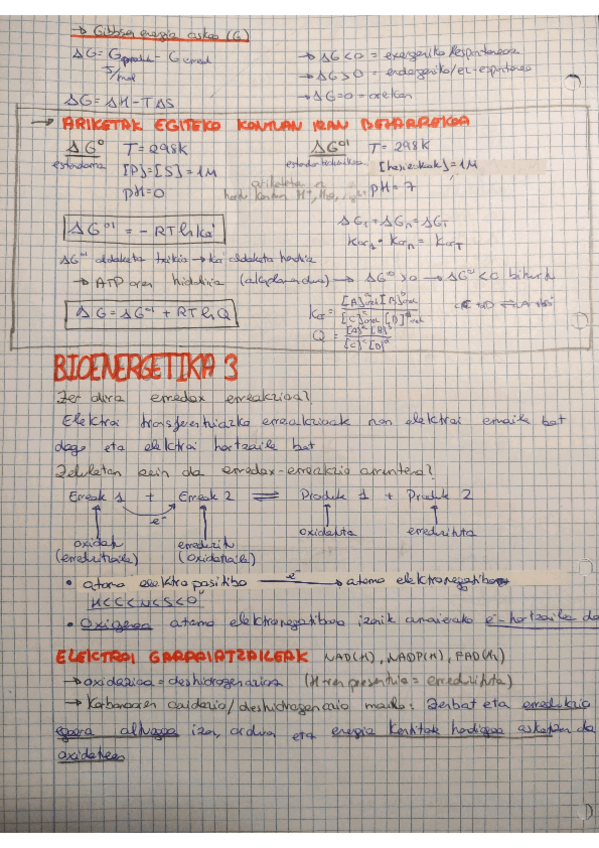 → Gibbsen energia askea (G)
ΔG = Gprodukt - G
J/mol
→ ΔG<0 = exergoniko/espontaneoa
→ ΔG>0 = endergoniko/ez-espontaneo
→ ΔG=0 = orekan
ΔG = ΔH - TΔS
→ ARIKETAK EGITEKO KONTUAN IZAN BEHARREKOA
ΔG⁰ T = 298K
estandarra [P]=[S]=1M
pH=0
ΔG⁰' T = 298K
=1M
pH=7
ΔG⁰' = -RT ln Ka'
ΔG₁ + ΔGₙ = ΔGT
ΔG⁰' aldaketa txikia → Ka aldaketa handia
→ ATP aren hidrolisia (akoplamendua) → ΔG⁰'>0 → ΔG⁰'<0 bihurtu
ΔG = ΔG⁰' + RT ln Q
BIOENERGETIKA 3
Zer dira erredox erreakzioa?
Elektroi transferentziazko erreakzioak non elektroi emaile bat
dago eta elektroi hartzaile bat
Zeluletan zein da erredox-erreakzio arruntena?
Erreak 1 + Erreak 2 ⇌ Produk 1 + Produk 2
e⁻
oxidatu erreduzitu oxidatuta erredukituta
(erreduktzaile) (oxidatzaile)
• atomo elektropositibo —e⁻→ atomo elektronegatiboa
H<C<N<S<O
• Oxigenoa atomo elektronegatiboena izanik amaierako e⁻-hartzailea da
ELEKTROI GARRAIATZAILEAK NAD(H), NADP(H), FAD(H₂)
→ oxidazioa = deshidrogenazioa (H-ren presentzia = erredukituta)
→ Karbonoaren oxidazio/deshidrogenazio maila: Zenbat eta erredukzio
egoera altuagoa izan, orduan eta energia kantitate handiagoa askatzen da
oxidatzean